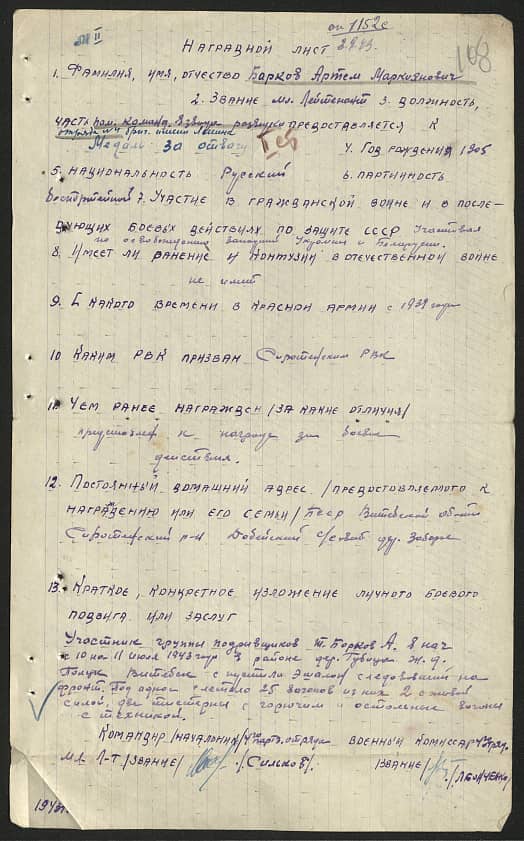 оп 1152с
II
29.49.
108
Наградной лист
1. Фамилия, имя, отчество Барков Артем Маркиянович
2. Звание мл. Лейтенант 3. Должность,
часть пом. команд. взвода разведки предоставляется к
отряда №4 бриг. имени Ленина
Медаль "За отвагу"
4. Год рождения 1905
5. Национальность Русский 6. Партийность
беспартейный 7. Участие в гражданской войне и в после-
дующих боевых действиях по защите СССР Участвовал
по освобождении западной Украины и Беларусии.
8. Имеет ли ранение и контузии в отечественной войне
не имеет
9. С какого времени в Красной Армии с 1939 года
10 Каким РВК призван Сиротенским РВК
11 Чем ранее награжден /за какие отличия/
представлен к награде за боевые
действия.
12. Постоянный домашний адрес /предоставляемого к
награждению или его семьи/ БССР Витебской области
Сиротенский р-н Добейский с/совет дер. Заборье
13. Краткое, конкретное изложение личного боевого
подвига или заслуг
Участник группы подрывщиков т. Барков А. в ночь
с 10 на 11 июля 1943 году в районе дер. ж.д.
Полоцк Витебск спустили эшалон следовавший на
фронт. Под откос слетело 25 вагонов из них 2 с живой
силой, две цистерны с горючим и остольные вагоны
с техникой.
Командир /начальник/ 4го парт. отряда Военный комиссар 4 отряд.
мл. Л-т /звание/ /Сильков/. звание/ /Левченко/
194 г.